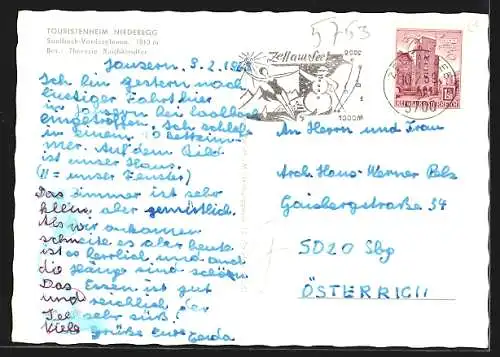 5753
TOURISTENHEIM NIEDEREGG
Saalbach-Vorderglemm, 1010 m
Bes.: Theresia
Zell am See
2000 m
1000 m
5700
Jausern, 9.2.196
Ich bin gestern nach
lustiger Fahrt hier
in Jausern bei Saalbach
eingetroffen. Ich schlafe
in einem 10 Bettzim-
mer. Auf dem Bild
ist unser Haus.
(II = unser Fenster)
Das Zimmer ist sehr
klein, aber gemütlich.
Als wir ankamen
schneite es aber heute
ist es herrlich und auch
die Hänge sind schön.
Das Essen ist gut
und reichlich, der
Tee sehr süß!
Viele Grüße Eure Gerda
An Herrn und Frau
Arch. Hans-Werner Pelz
Gaisbergstraße 54
5020 Sbg
ÖSTERREICH